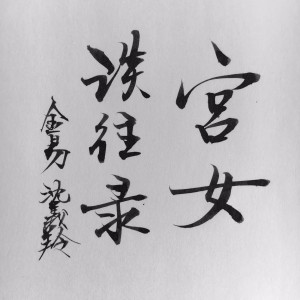 宫女
谈往录
金易 沈義羚